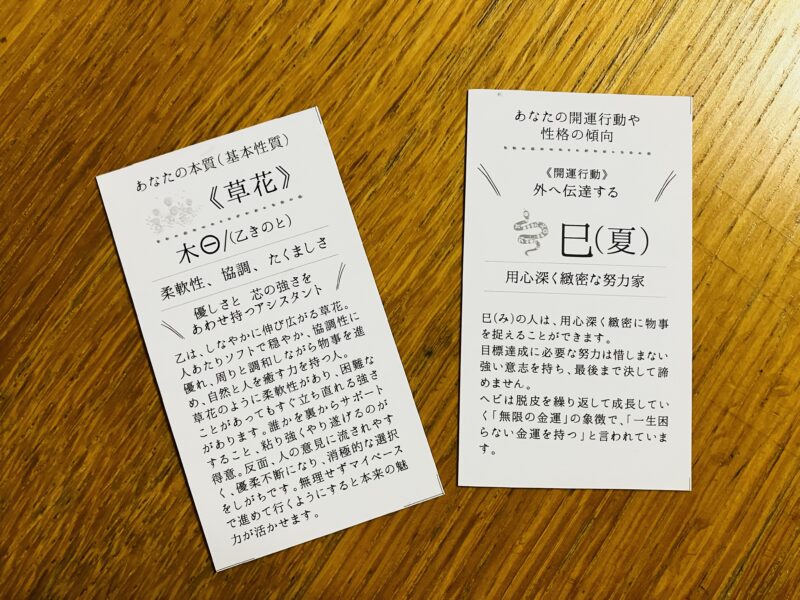 あなたの本質(基本性質)
《草花》
木⊖/(乙きのと)
柔軟性、協調、たくましさ
優しさと 芯の強さを
あわせ持つアシスタント
乙は、しなやかに伸び広がる草花。
人あたりソフトで穏やか、協調性に
優れ、周りと調和しながら物事を進
め、自然と人を癒す力を持つ人。
草花のように柔軟性があり、困難な
ことがあってもすぐ立ち直れる強さ
があります。誰かを裏からサポート
すること、粘り強くやり遂げるのが
得意。反面、人の意見に流されやす
く、優柔不断になり、消極的な選択
をしがちです。無理せずマイペース
で進めて行くようにすると本来の魅
力が活かせます。
あなたの開運行動や
性格の傾向
《開運行動》
外へ伝達する
巳(夏)
用心深く緻密な努力家
巳(み)の人は、用心深く緻密に物事
を捉えることができます。
目標達成に必要な努力は惜しまない
強い意志を持ち、最後まで決して諦
めません。
ヘビは脱皮を繰り返して成長してい
く「無限の金運」の象徴で、「一生困
らない金運を持つ」と言われていま
す。